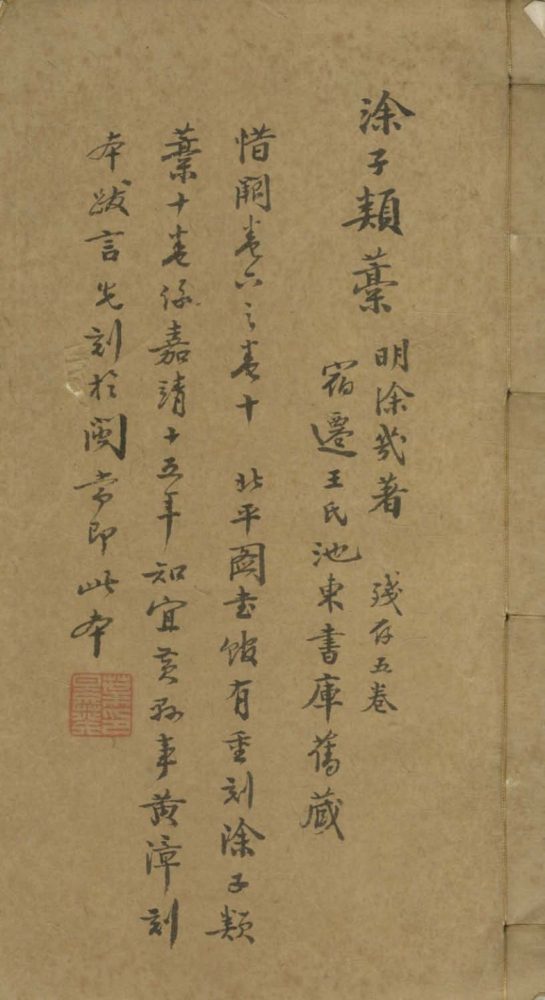 涂子類藁 明涂幾著 殘存五卷
宿遷王氏池東書庫舊藏
惜闕卷六之卷十 北平圖書館有重刻涂子類
藁十卷係嘉靖十五年知宜黃縣事黃漳刻
本跋言先刻於閩當即此本